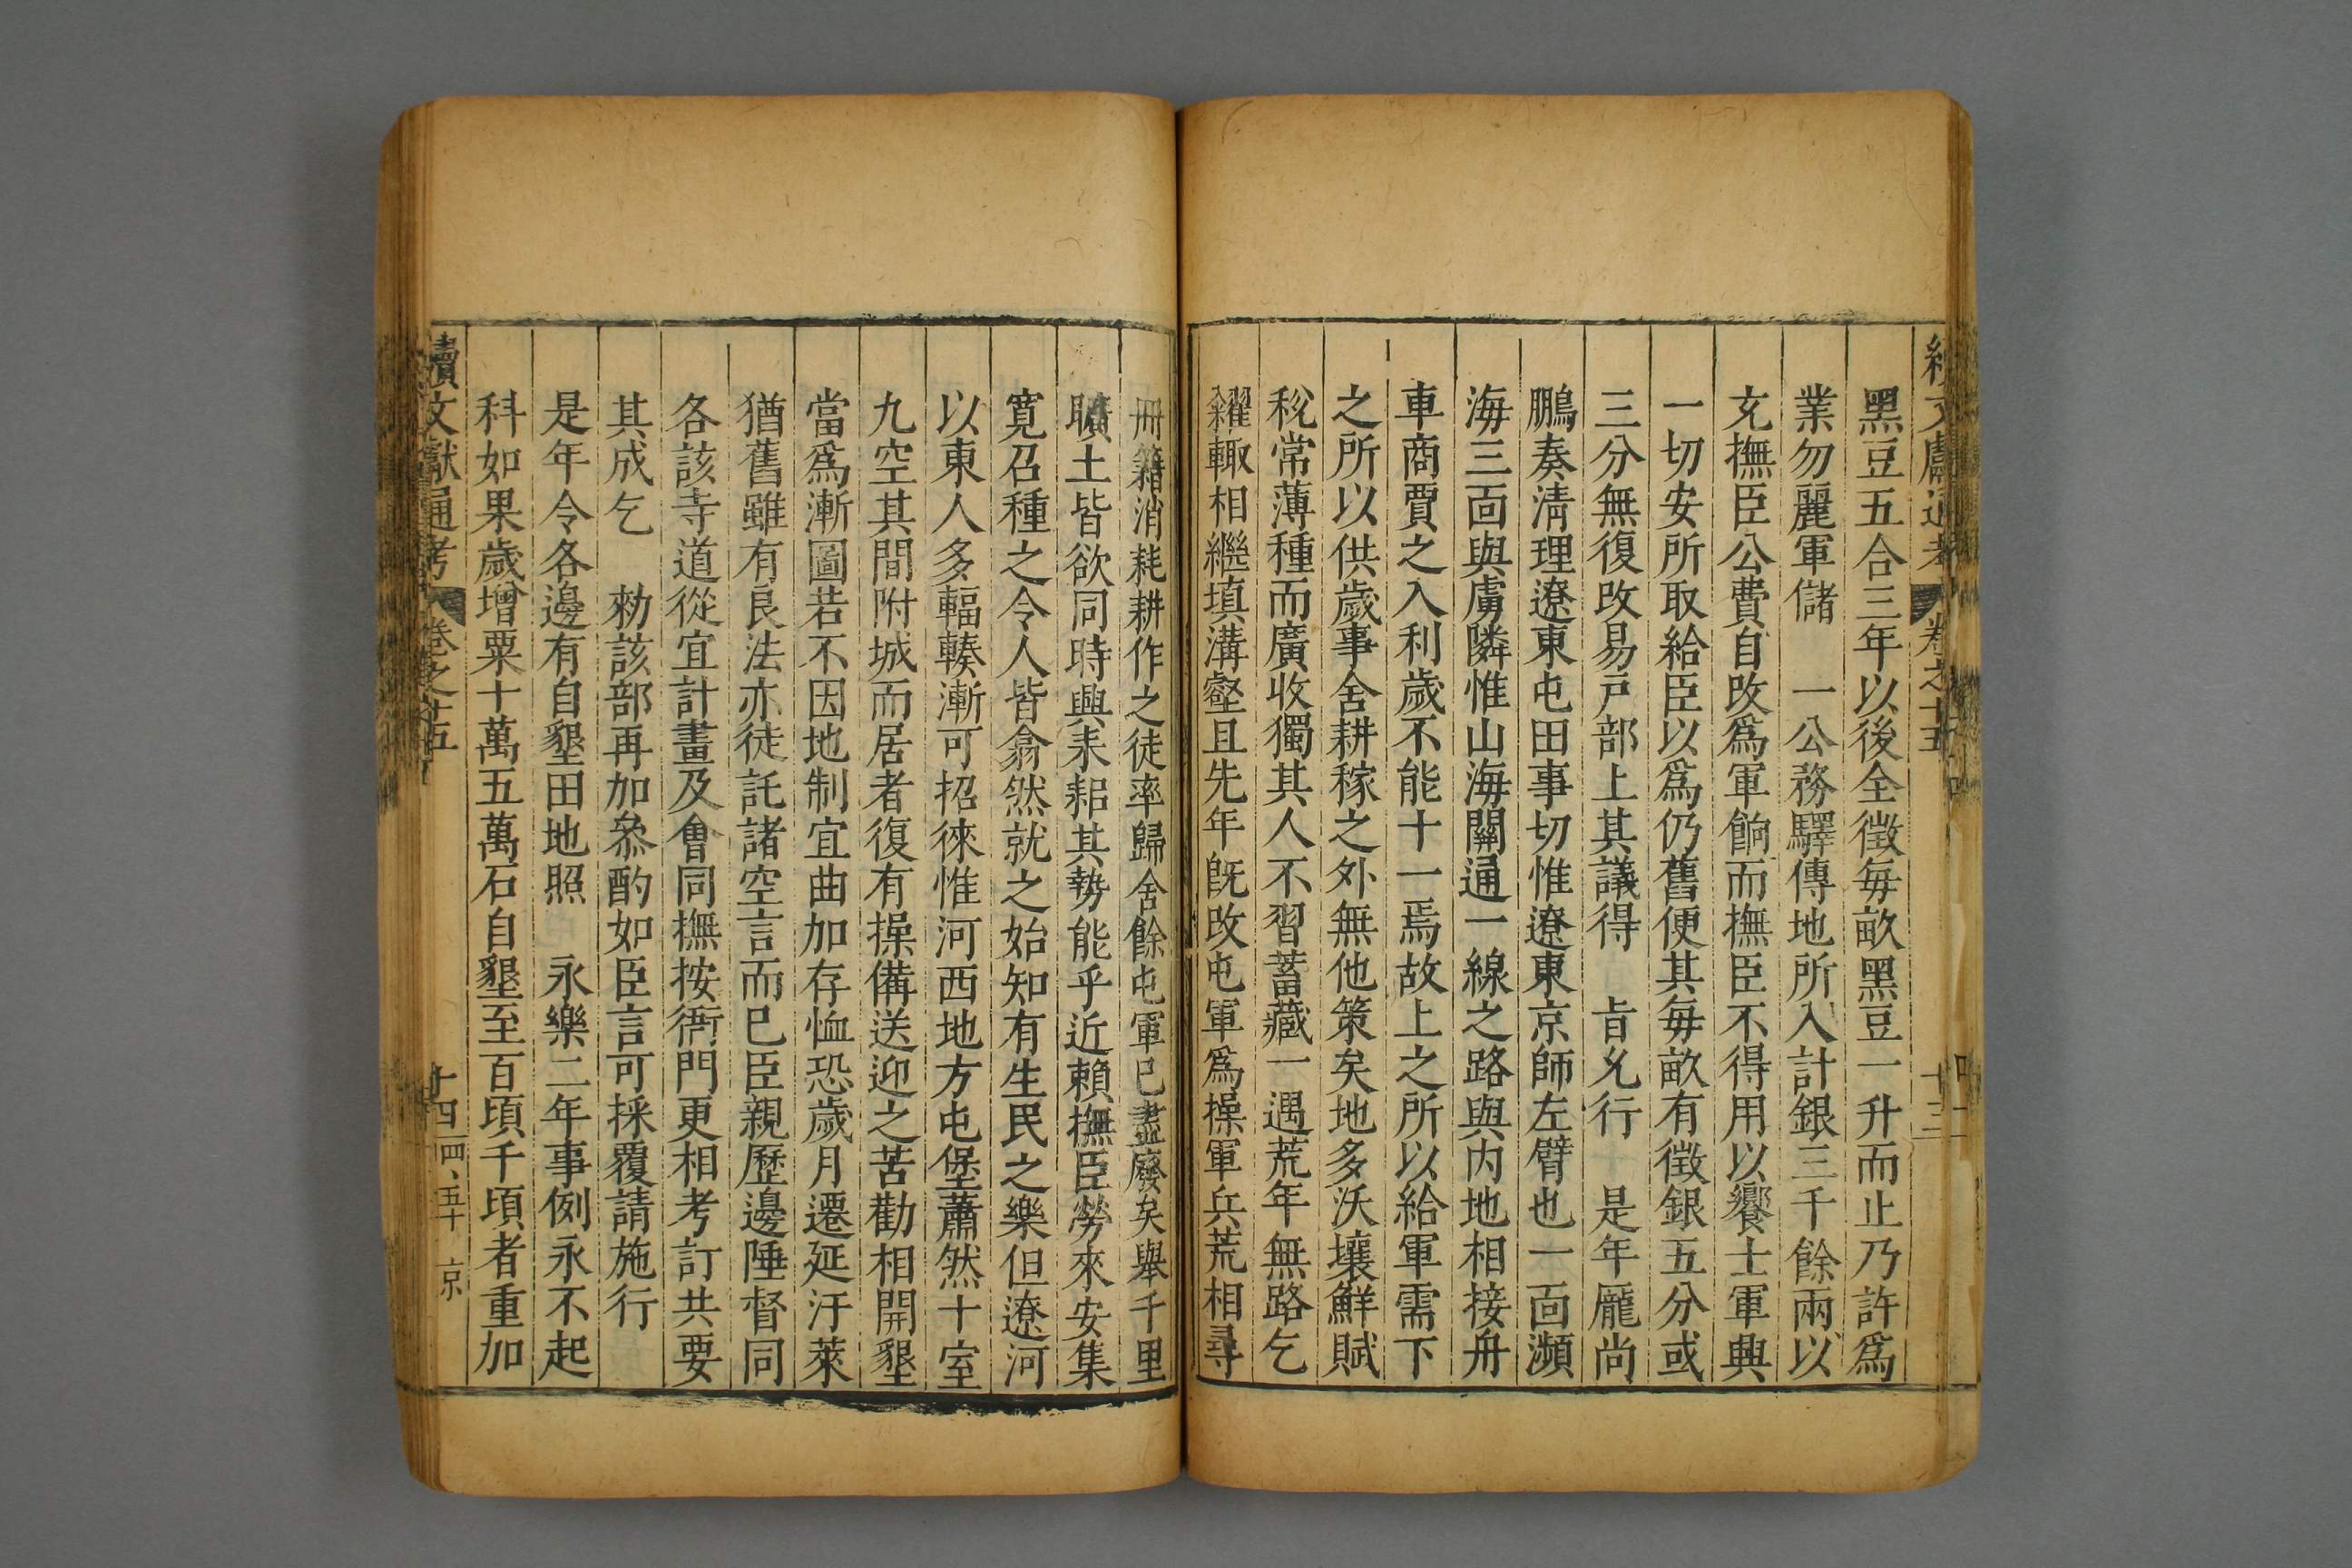 續文獻通考 卷之十五 十三
黑豆五合三年以後全徵每畝黑豆一升而止乃許爲
業勿麗軍儲 一公務驛傳地所入計銀三千餘兩以
充撫臣公費自改爲軍餉而撫臣不得用以饗士軍興
一切安所取給臣以爲仍舊便其每畝有徵銀五分或
三分無復改易戸部上其議得 旨允行 是年龐尚
鵬奏淸理遼東屯田事切惟遼東京師左臂也一面瀕
海三面與虜隣惟山海關通一線之路與内地相接舟
車商賈之入利歲不能十一焉故上之所以給軍需下
之所以供歲事舍耕稼之外無他策矣地多沃壤鮮賦
稅常薄種而廣收獨其人不習蓄藏一遇荒年無路乞
糴輙相繼填溝壑且先年旣改屯軍爲操軍兵荒相尋
冊籍消耗耕作之徒率歸舍餘屯軍已盡廢矣舉千里
曠土皆欲同時興耒耜其勢能乎近賴撫臣勞來安集
寛召種之令人皆翕然就之始知有生民之樂但遼河
以東人多輻輳漸可招徠惟河西地方屯堡蕭然十室
九空其間附城而居者復有操備送迎之苦勸相開墾
當爲漸圖若不因地制宜曲加存恤恐歲月遷延汙萊
猶舊雖有良法亦徒託諸空言而已臣親歷邊陲督同
各該寺道從宜計畫及會同撫按衙門更相考訂共要
其成乞 勑該部再加叅酌如臣言可採覆請施行
是年令各邊有自墾田地照 永樂二年事例永不起
科如果歲增粟十萬五萬石自墾至百頃千頃者重加
續文獻通考 卷之十五 十四 京